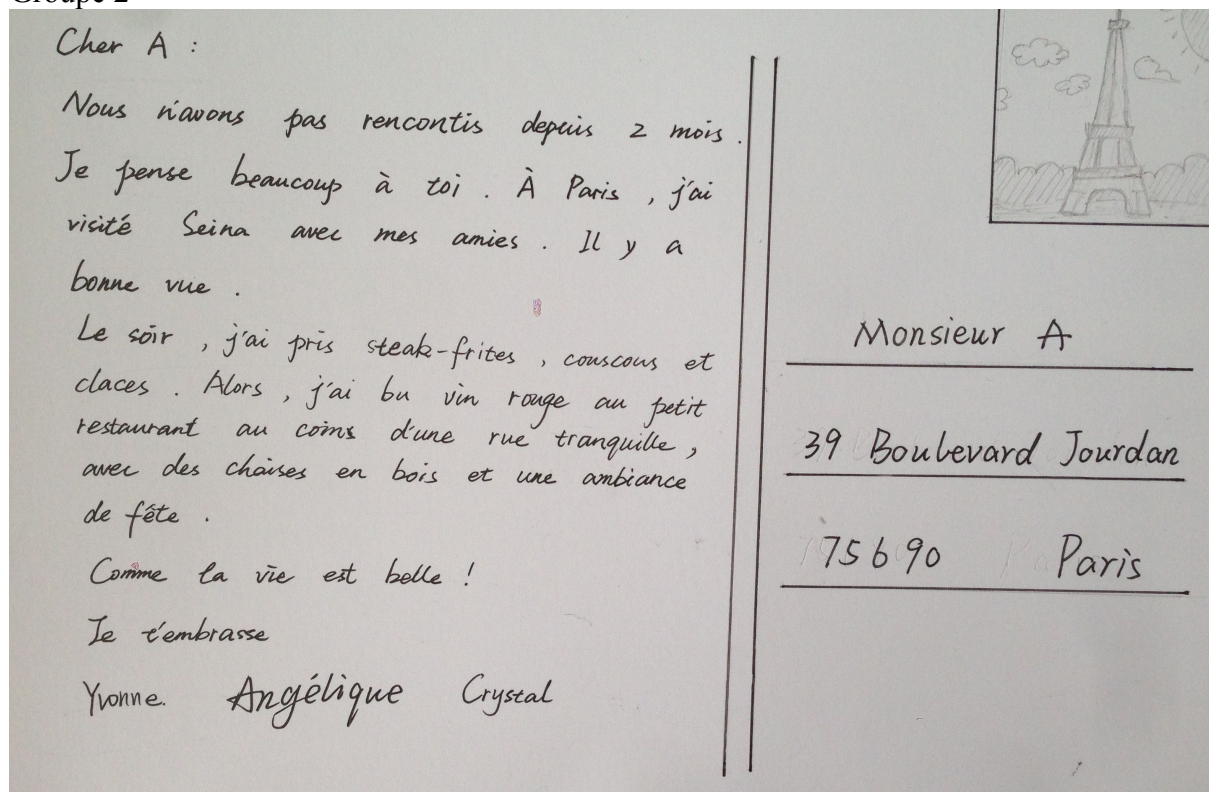 Groupe 2
Cher A :
Nous n'avons pas rencontis depuis 2 mois.
Je pense beaucoup à toi . À Paris , j'ai
visité Seina avec mes amies . Il y a
bonne vue .
Le soir , j'ai pris steak-frites , couscous et
claces . Alors , j'ai bu vin rouge au petit
restaurant au coins d'une rue tranquille ,
avec des chaises en bois et une ambiance
de fête .
Comme la vie est belle !
Je t'embrasse
Yvonne. Angélique Crystal
Monsieur A
39 Boulevard Jourdan
75690 Paris